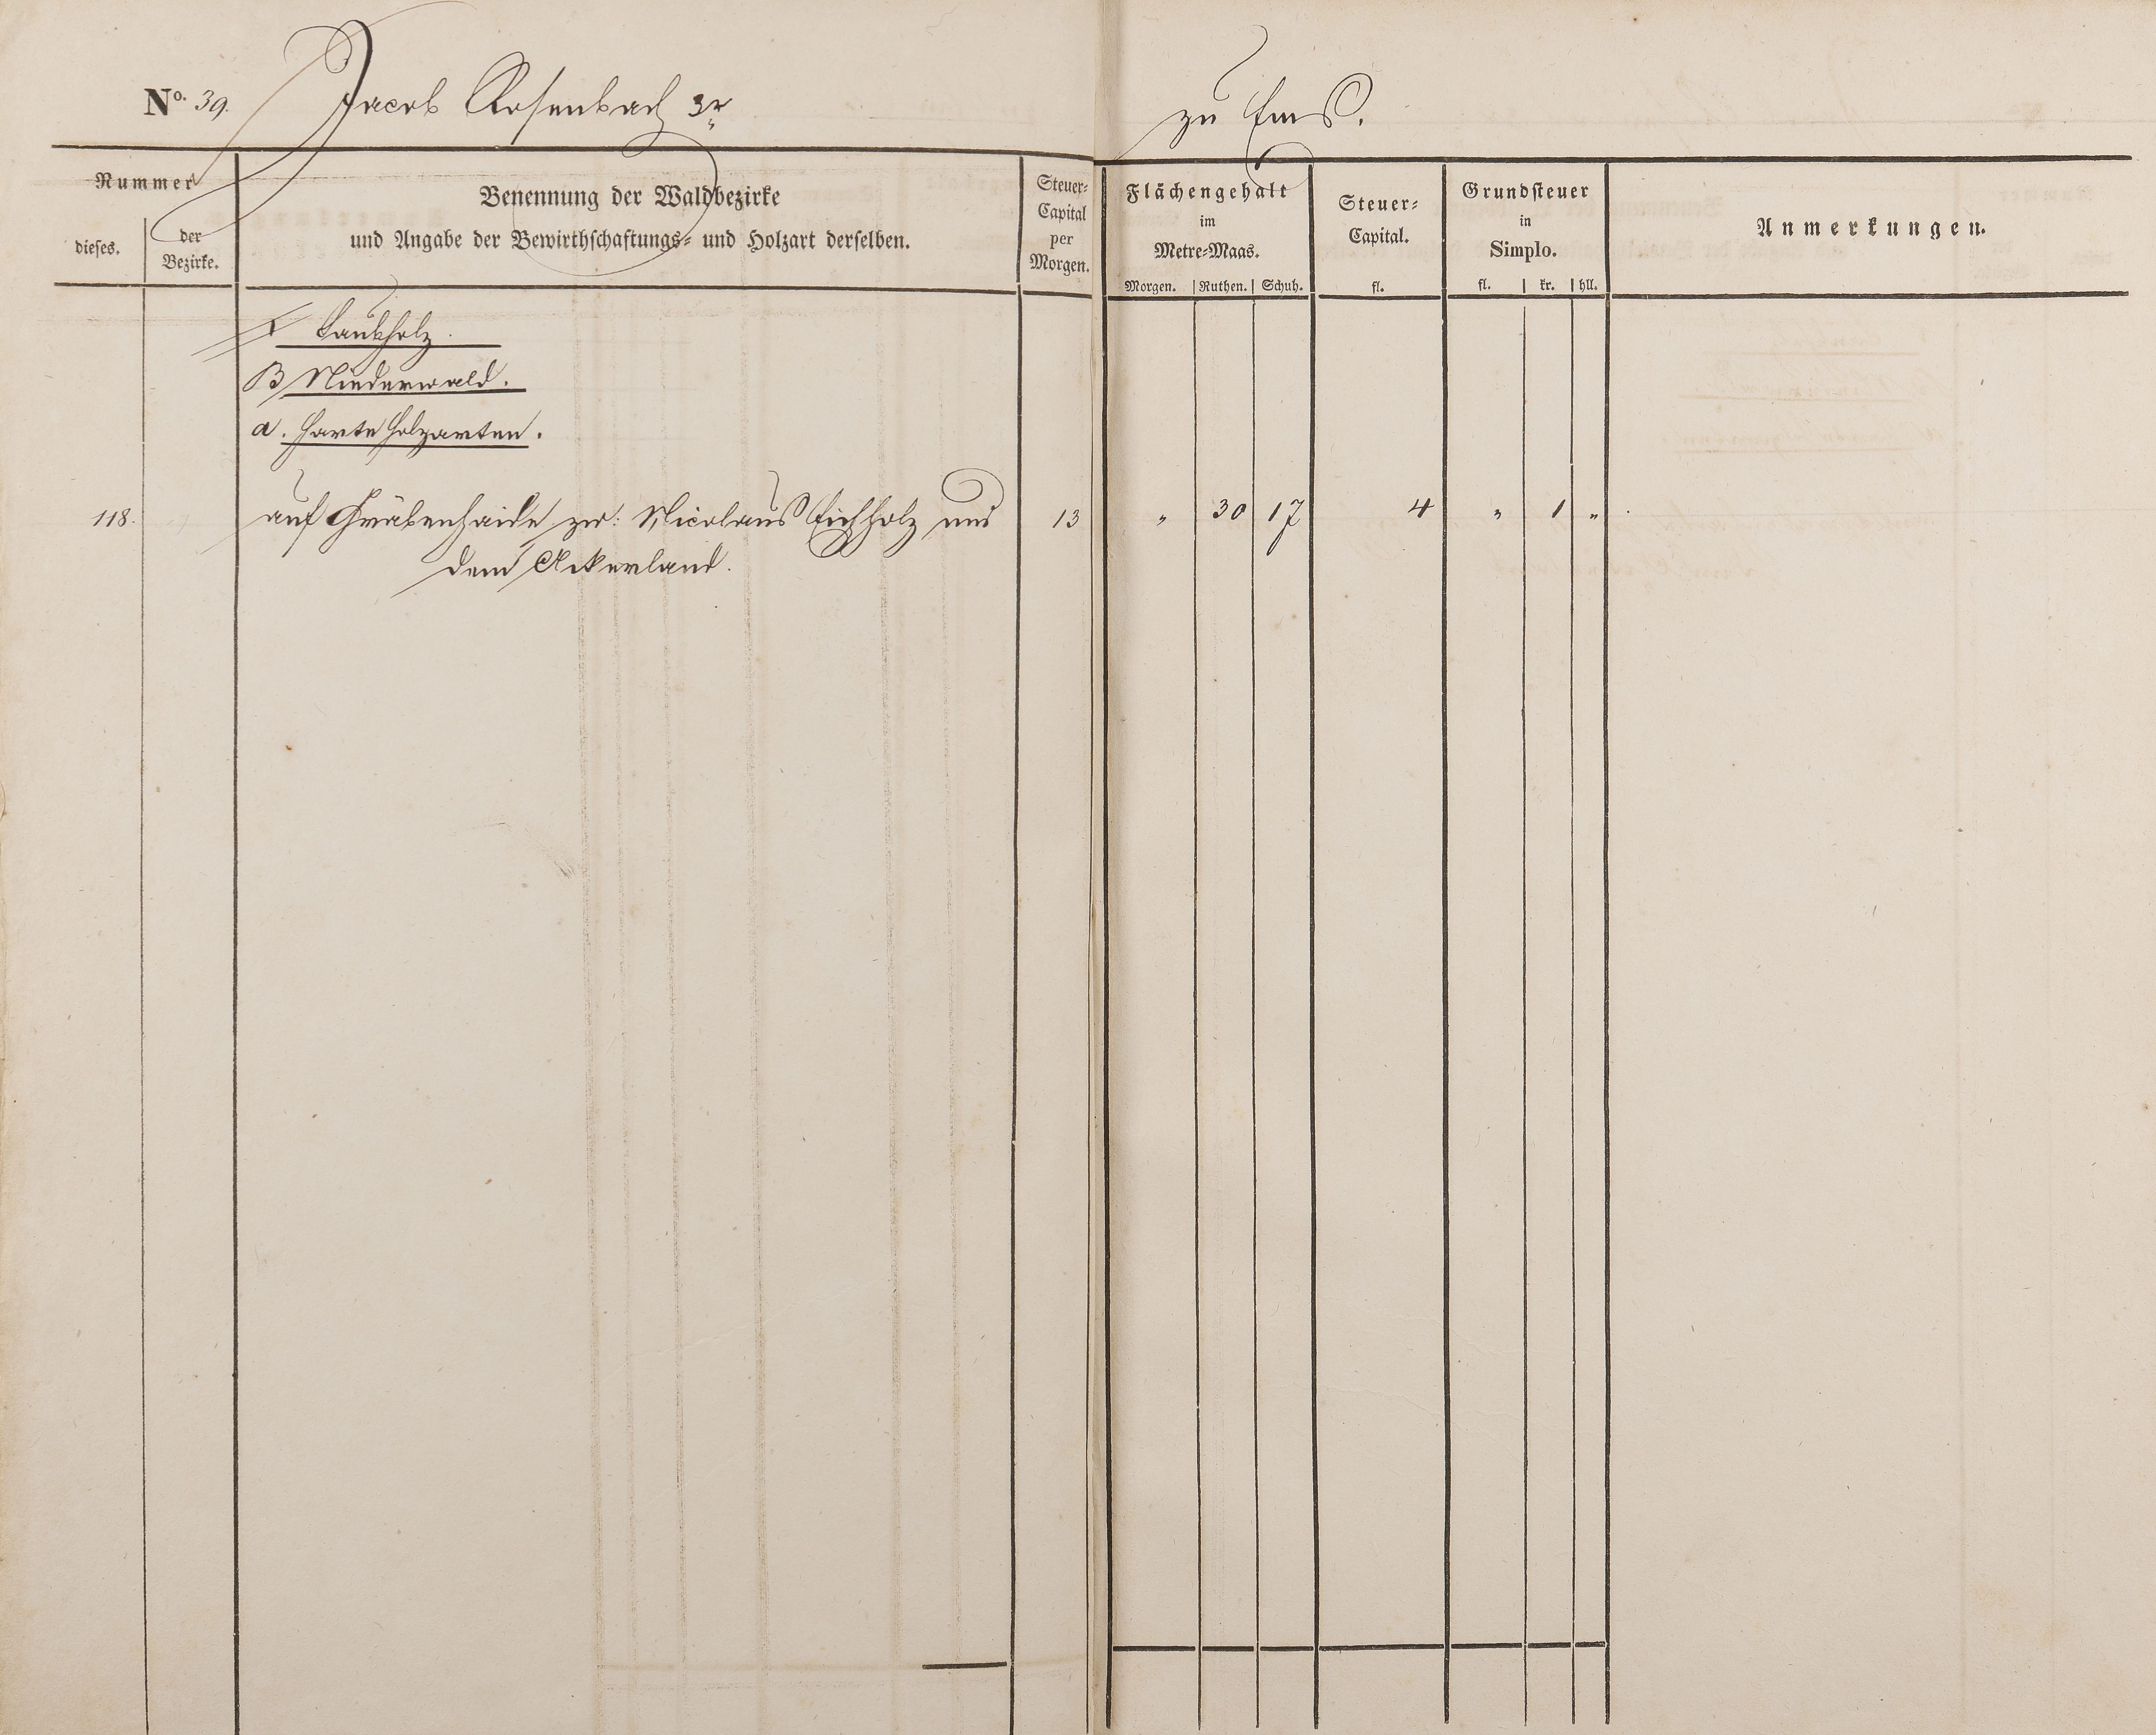 No. 39. Jacob Rosenbach 3r zu Ems.
Nummer
dieses.
der Bezirke.
Benennung der Waldbezirke
und Angabe der Bewirthschaftungs- und Holzart derselben.
Steuer-
Capital
per
Morgen.
Flächengehalt
im
Metre-Maas.
Morgen. Ruthen. Schuh.
Steuer-
Capital.
fl.
Grundsteuer
in
Simplo.
fl. kr. hll.
Anmerkungen.
I Laubholz.
B Niederwald.
a. harte Holzarten.
118. auf Gräbenhaide zw: Nicolaus Eichholz und 13 " 30 17 4 " 1 "
dem Ackerland.